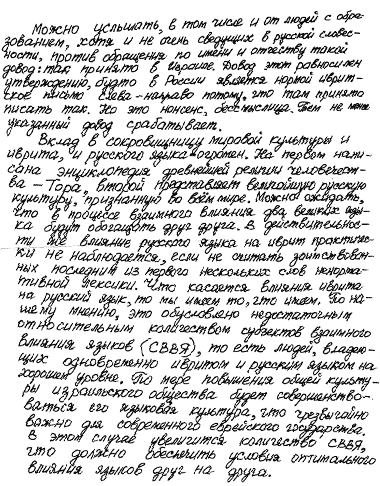 Можно услышать, в том числе и от людей с обра-
зованием, хотя и не очень сведущих в русской словес-
ности, против обращения по имени и отчеству такой
довод: так принято в Израиле. Довод этот равносилен
утверждению, будто в России является нормой иврит-
ское письмо слева-направо потому, что там принято
писать так. Но это нонсенс, бессмыслица. Тем не менее
указанный довод срабатывает.
Вклад в сокровищницу мировой культуры и
иврита, и русского языка огромен. На первом напи-
сана энциклопедия древнейшей религии человечест-
ва - Тора, второй представляет величайшую русскую
культуру, признанную во всём мире. Можно ожидать,
что в процессе взаимного влияния два великих язы-
ка будут обогащать друг друга. В действительнос-
ти же влияние русского языка на иврит практичес-
ки не наблюдается, если не считать заимствован-
ных последним из первого нескольких слов ненорма-
тивной лексики. Что касается влияния иврита
на русский язык, то мы имеем то, что имеем. По на-
шему мнению, это обусловлено недостаточным
относительным количеством субъектов взаимного
влияния языков (СВВЯ), то есть людей, владею-
щих одновременно ивритом и русским языком на
хорошем уровне. По мере повышения общей культу-
ры израильского общества будет совершенство-
ваться его языковая культура, что чрезвычайно
важно для современного еврейского государства.
В этом случае увеличится количество СВВЯ,
что должно обеспечить условия оптимального
влияния языков друг на друга.